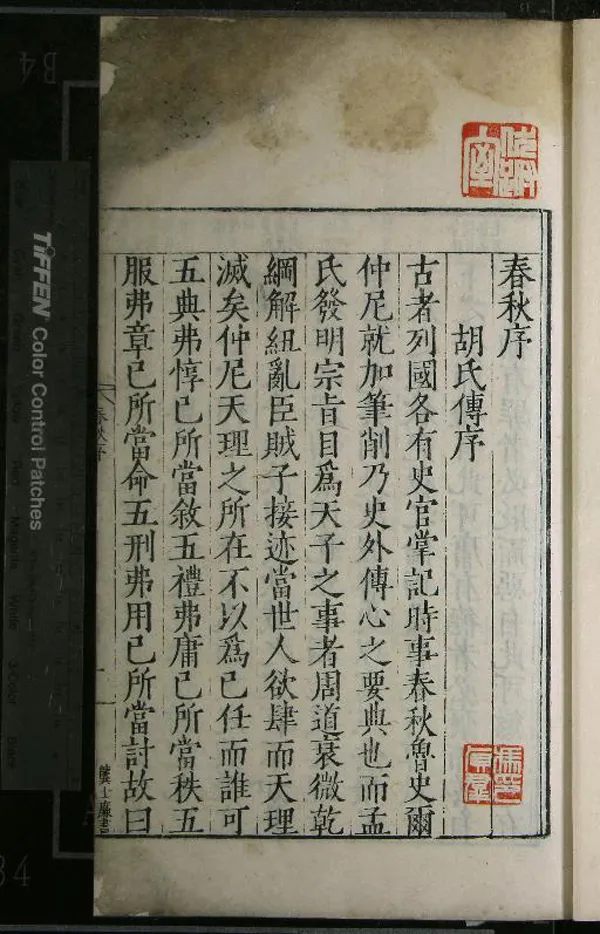 春秋序
胡氏傳序
古者列國各有史官掌記時事春秋魯史爾
仲尼就加筆削乃史外傳心之要典也而孟
氏發明宗旨目爲天子之事者周道衰微乾
綱解紐亂臣賊子接迹當世人欲肆而天理
滅矣仲尼天理之所在不以爲已任而誰可
五典弗惇已所當敘五禮弗庸已所當秩五
服弗章已所當命五刑弗用已所當討故曰
春秋序
TIFFEN Color Control Patches
B4